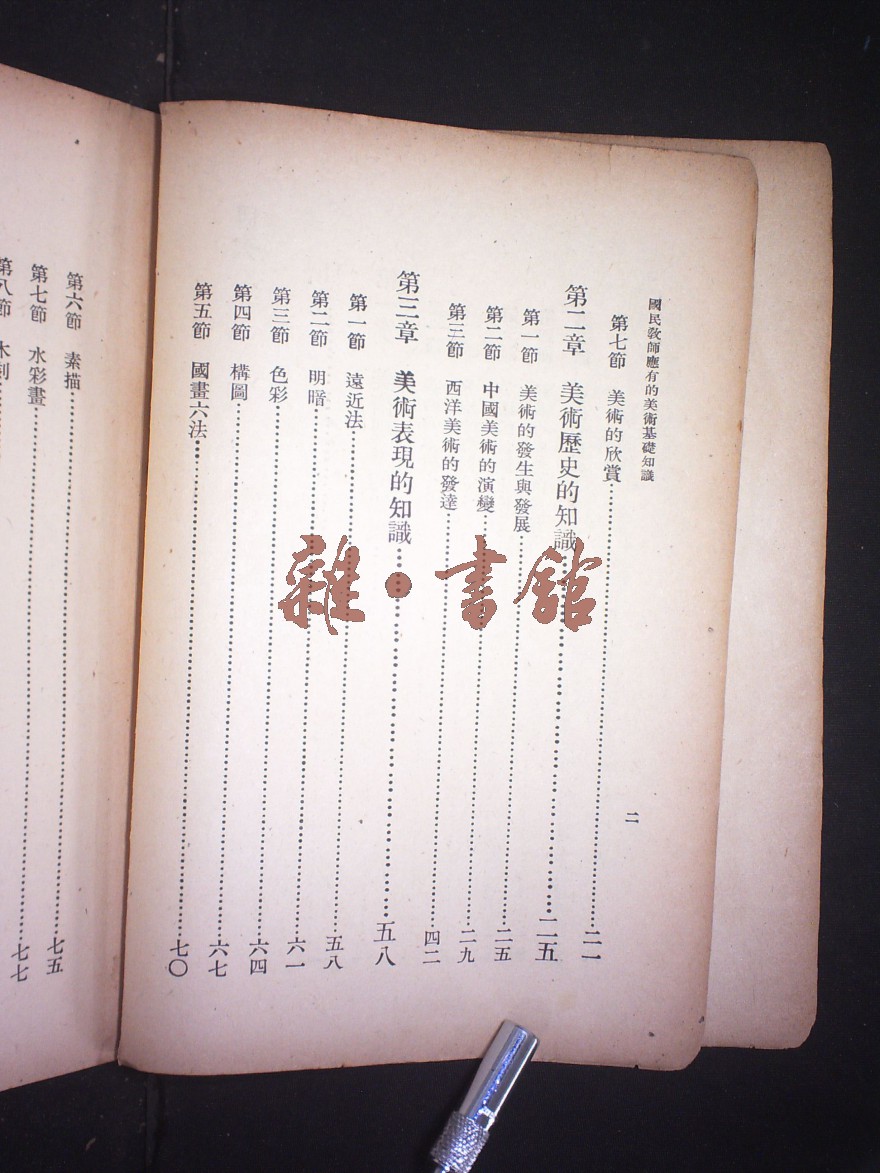 國民教師應有的美術基礎知識
二
第七節 美術的欣賞……二一
第二章 美術歷史的知識……二五
第一節 美術的發生與發展……二五
第二節 中國美術的演變……二九
第三節 西洋美術的發達……四二
第三章 美術表現的知識……五八
第一節 遠近法……五八
第二節 明暗……六一
第三節 色彩……六四
第四節 構圖……六七
第五節 國畫六法……七〇
第六節 素描……七五
第七節 水彩畫……七七
第八節 木刻……
雜·書館